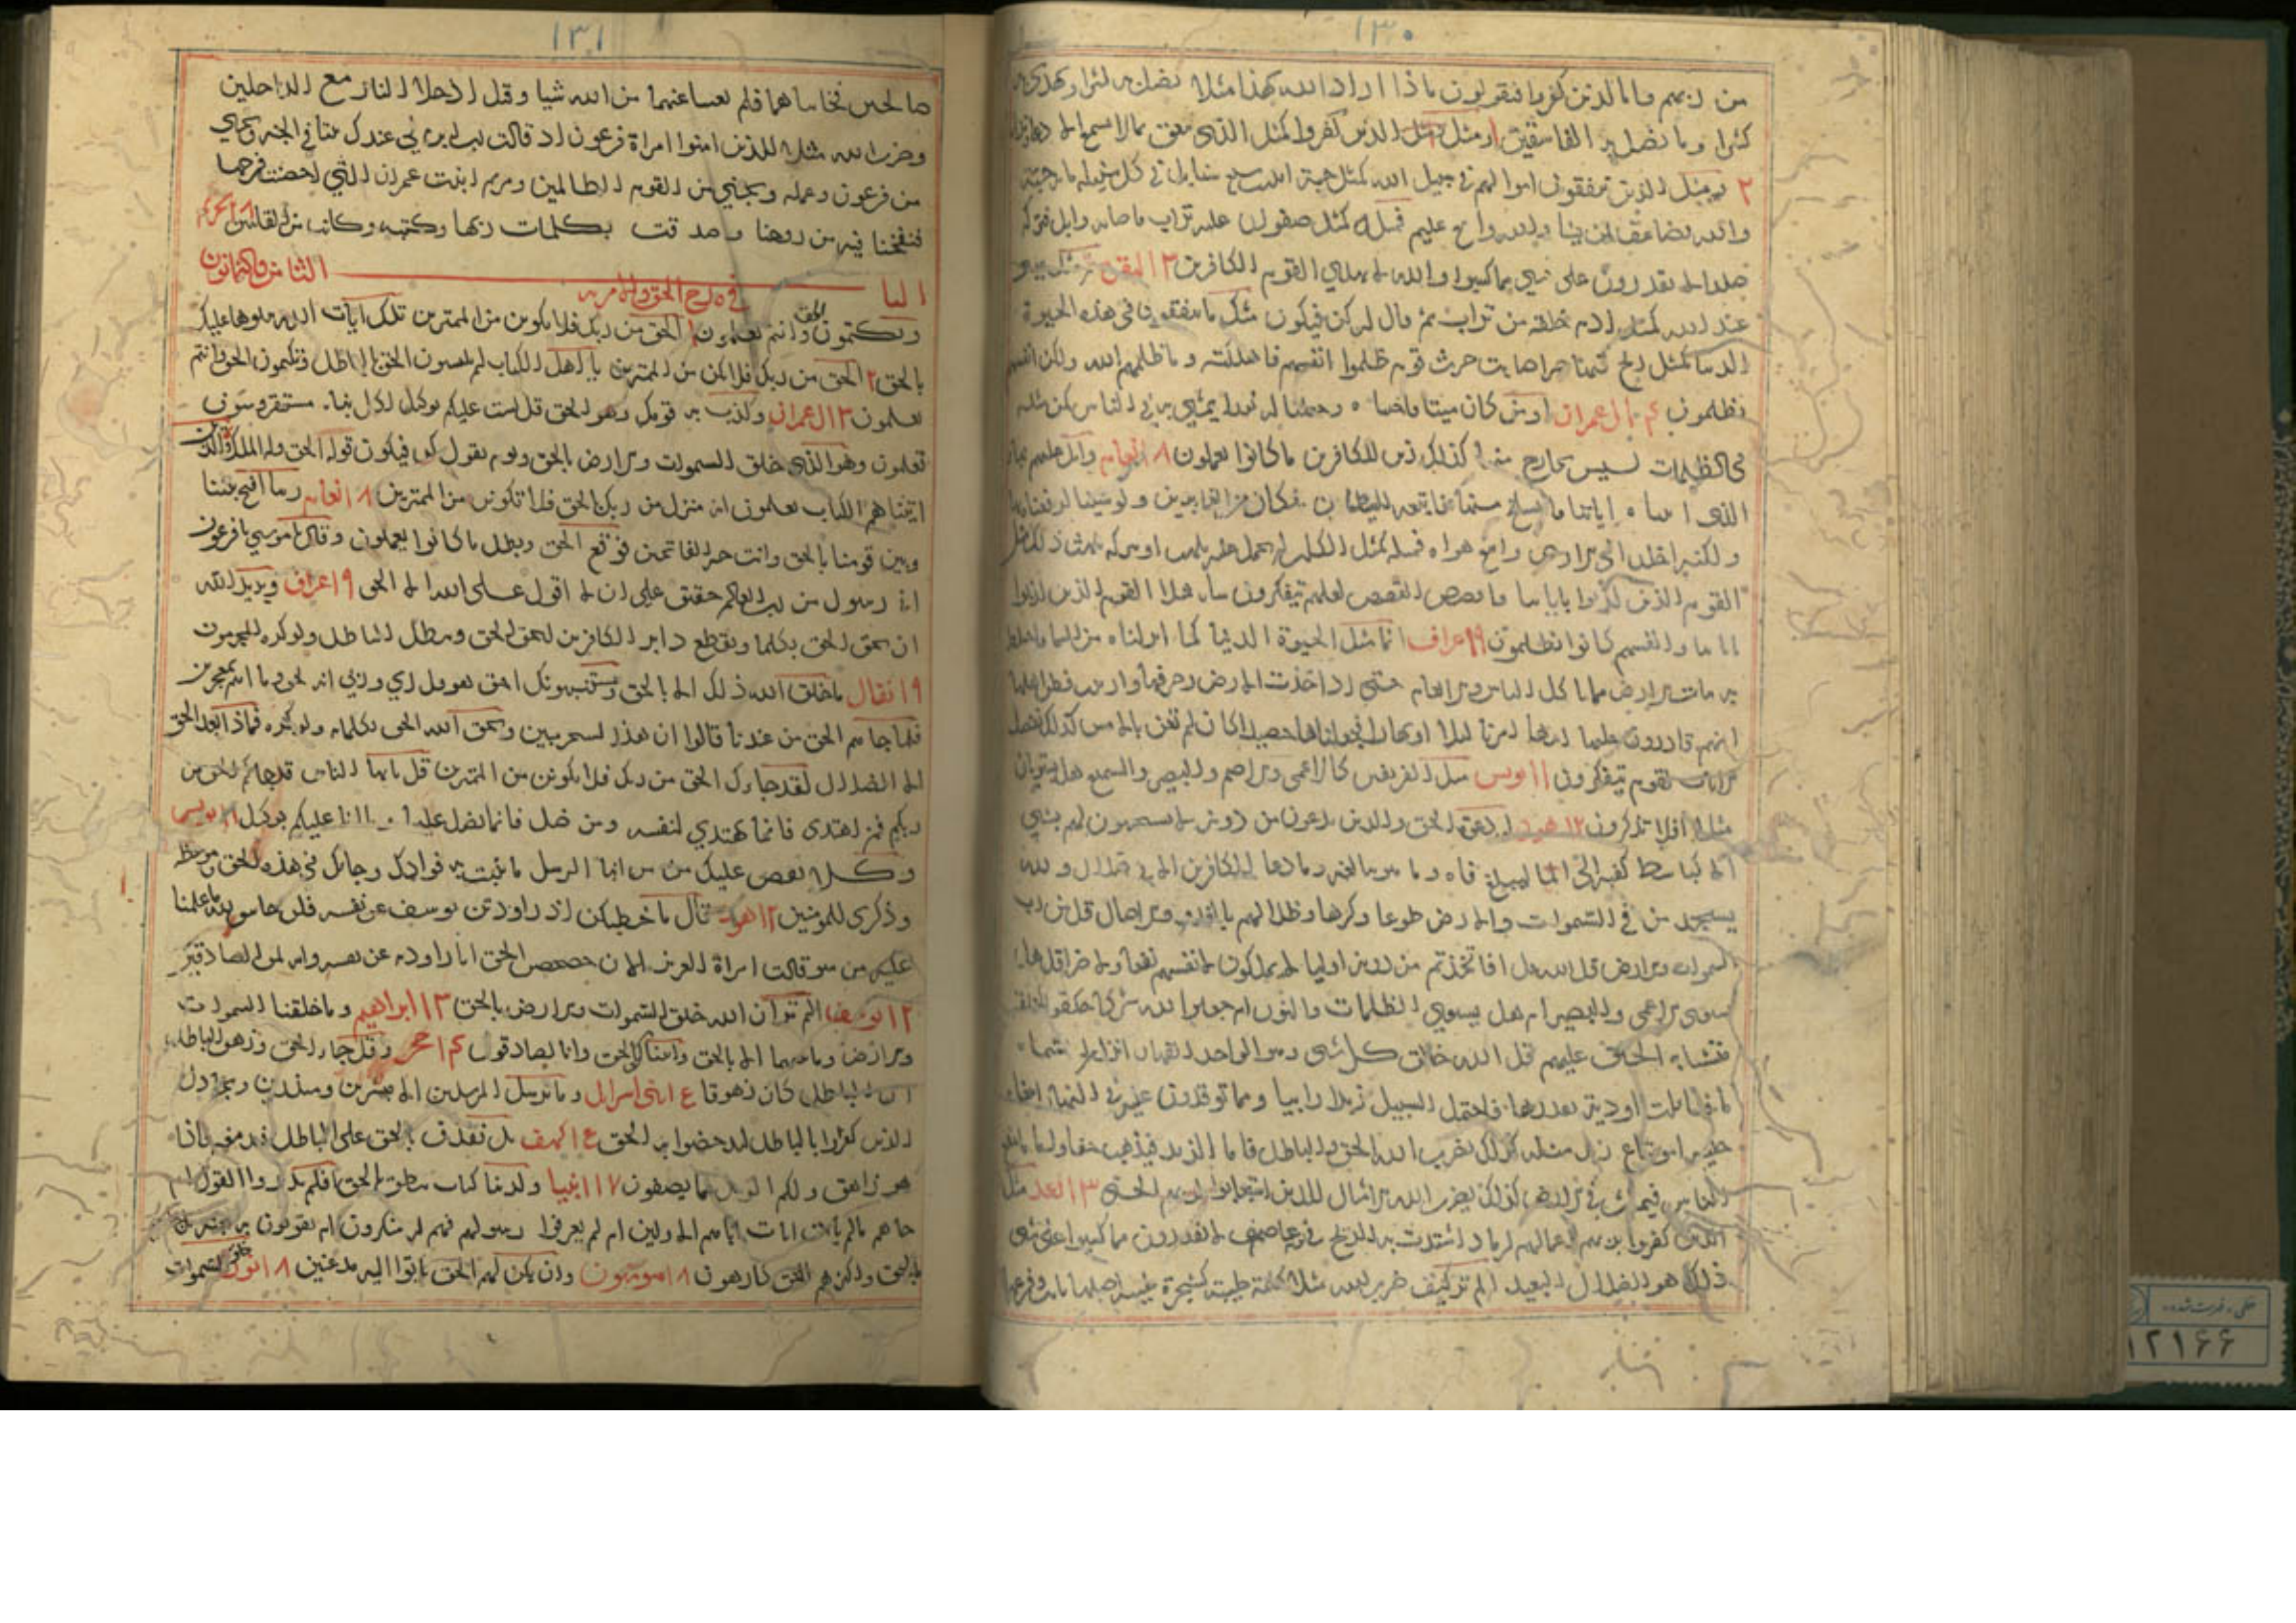 ١٣٠
من ربهم واما الذين كفروا فيقولون ماذا اراد الله بهذا مثلا يضل به كثيرا ويهدي به
كثيرا وما يضل به الا الفاسقين ومثل الذين كفروا كمثل الذي ينعق بما لا يسمع الا دعا
٢ مثل الذين ينفقون اموالهم في سبيل الله كمثل حبة انبتت سبع سنابل في كل سنبلة ماية حبة
والله يضاعف لمن يشا والله واسع عليم فمثله كمثل صفوان عليه تراب فاصابه وابل فتركه
صلدا لا يقدرون على شي مما كسبوا والله لا يهدي القوم الكافرين ٣ البقرة مثل عيسى
عند الله كمثل ادم خلقه من تراب ثم قال له كن فيكون مثل ما ينفقون في هذه الحيوة
الدنيا كمثل ريح فيها صر اصابت حرث قوم ظلموا انفسهم فاهلكته وما ظلمهم الله ولكن انفسهم
يظلمون ٤ ال عمران اومن كان ميتا فاحيناه وجعلنا له نورا يمشي به في الناس كمن مثله
في الظلمات ليس بخارج منها كذلك زين للكافرين ما كانوا يعملون ٨ انعام واتل عليهم نبا
الذي اتيناه اياتنا فانسلخ منها فاتبعه الشيطان فكان من الغاوين ولو شينا لرفعناه بها
ولكنه اخلد الى الارض واتبع هواه فمثله كمثل الكلب ان تحمل عليه يلهث او تتركه يلهث ذلك مثل
القوم الذين كذبوا باياتنا فاقصص القصص لعلهم يتفكرون ساء مثلا القوم الذين كذبوا
باياتنا وانفسهم كانوا يظلمون ٩ اعراف انما مثل الحيوة الدنيا كما انزلناه من السما فاختلط
به نبات الارض مما ياكل الناس والانعام حتى اذا اخذت الارض زخرفها وازينت وظن اهلها
انهم قادرون عليها اتيها امرنا ليلا او نهارا فجعلناها حصيدا كان لم تغن بالامس كذلك نفصل
الايات لقوم يتفكرون ١١ يونس مثل الفريقين كالاعمى والاصم والبصير والسميع هل يستويان
مثلا افلا تذكرون ١٢ هود له دعوة الحق والذين يدعون من دونه لا يستجيبون لهم بشي
الا كباسط كفيه الى الما ليبلغ فاه وما هو ببالغه وما دعا الكافرين الا في ضلال ولله
يسجد من في السموات والارض طوعا وكرها وظلالهم بالغدو والاصال قل من رب
السموات والارض قل الله قل افاتخذتم من دونه اوليا لا يملكون لانفسهم نفعا ولا ضرا قل هل
يستوي الاعمى والبصير ام هل يستوي الظلمات والنور ام جعلوا لله شركا خلقوا كخلقه
فتشابه الخلق عليهم قل الله خالق كل شي وهو الواحد القهار انزل من السما
ما فسالت اودية بقدرها فاحتمل السيل زبدا رابيا ومما توقدون عليه في النار ابتغاء
حلية او متاع زبد مثله كذلك يضرب الله الحق والباطل فاما الزبد فيذهب جفاء واما ما ينفع
الناس فيمكث في الارض كذلك يضرب الله الامثال للذين استجابوا لربهم الحسنى ١٣ الرعد مثل
الذين كفروا بربهم اعمالهم كرماد اشتدت به الريح في يوم عاصف لا يقدرون مما كسبوا على شي
ذلك هو الضلال البعيد الم تر كيف ضرب الله مثلا كلمة طيبة كشجرة طيبة اصلها ثابت وفرعها
١٢١٦۶
١٣١
صالحين فخانتاهما فلم يغنيا عنهما من الله شيا وقيل ادخلا النار مع الداخلين
وضرب الله مثلا للذين امنوا امراة فرعون اذ قالت رب ابن لي عندك بيتا في الجنة ونجني
من فرعون وعمله ونجني من القوم الظالمين ومريم ابنت عمران التي احصنت فرجها
فنفخنا فيه من روحنا وصدقت بكلمات ربها وكتبه وكانت من القانتين ٢٨ تحريم
البا الثامن والثمانون
في مدح الحق والامر به
وتكتمون الحق وانتم تعلمون ١ الحق من ربك فلا تكونن من الممترين تلك ايات الله نتلوها عليك
بالحق ٢ الحق من ربك فلا تكن من الممترين يا اهل الكتاب لم تلبسون الحق بالباطل وتكتمون الحق وانتم
تعلمون ٣ ال عمران وكذب به قومك وهو الحق قل لست عليكم بوكيل لكل نبا مستقر وسوف
تعلمون وهو الذي خلق السموات والارض بالحق ويوم يقول كن فيكون قوله الحق وله الملك والذين
اتيناهم الكتاب يعلمون انه منزل من ربك بالحق فلا تكونن من الممترين ٨ انعام ربنا افتح بيننا
وبين قومنا بالحق وانت خير الفاتحين فوقع الحق وبطل ما كانوا يعملون وقال موسى يا فرعون
اني رسول من رب العالمين حقيق على ان لا اقول على الله الا الحق ٩ اعراف ويريد الله
ان يحق الحق بكلماته ويقطع دابر الكافرين ليحق الحق ويبطل الباطل ولو كره المجرمون
٩ انفال ما خلق الله ذلك الا بالحق ويستنبئونك احق هو قل اي وربي انه لحق وما انتم بمعجزين
فلما جاهم الحق من عندنا قالوا ان هذا لسحر مبين ويحق الله الحق بكلماته ولو كره فماذا بعد الحق
الا الضلال لقد جاءك الحق من ربك فلا تكونن من الممترين قل يا ايها الناس قد جاءكم الحق من
ربكم فمن اهتدى فانما يهتدي لنفسه ومن ضل فانما يضل عليها وما انا عليكم بوكيل ١١ يونس
وكلا نقص عليك من انبا الرسل ما نثبت به فوادك وجاءك في هذه الحق وموعظة
وذكرى للمومنين ١٢ هود قال ما خطبكن اذ راودتن يوسف عن نفسه قلن حاش لله ما علمنا
عليه من سو قالت امراة العزيز الان حصحص الحق انا راودته عن نفسه وانه لمن الصادقين
١٢ يوسف الم تر ان الله خلق السموات والارض بالحق ١٣ ابراهيم وما خلقنا السموات
والارض وما بينهما الا بالحق واتيناك بالحق وانا لصادقون ١٤ حجر وقل جاء الحق وزهق الباطل
ان الباطل كان زهوقا ع ا بني اسرائل وما نرسل المرسلين الا مبشرين ومنذرين ويجادل
الذين كفروا بالباطل ليدحضوا به الحق ع ا كهف بل نقذف بالحق على الباطل فيدمغه فاذا
هو زاهق ولكم الويل مما يصفون ١٧ انبيا ولدينا كتاب ينطق بالحق افلم يدبروا القول ام
جاهم ما لم يات اباهم الاولين ام لم يعرفوا رسولهم فهم له منكرون ام يقولون به جنة بل
بالحق واكثرهم للحق كارهون ١٨ مومنون وان يكن لهم الحق ياتوا اليه مذعنين ١٨ نور خلق السموات